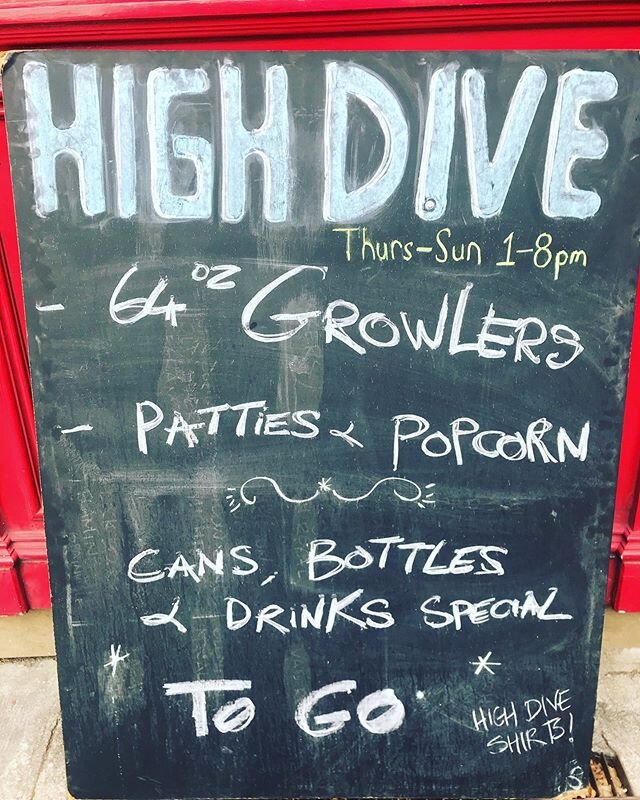 HIGH DIVE
Thurs-Sun 1-8pm
- 64 oz GROWLERS
- PATTIES & POPCORN
CANS, BOTTLES
& DRINKS SPECIAL
* *
TO GO
HIGH DIVE
SHIRTS!